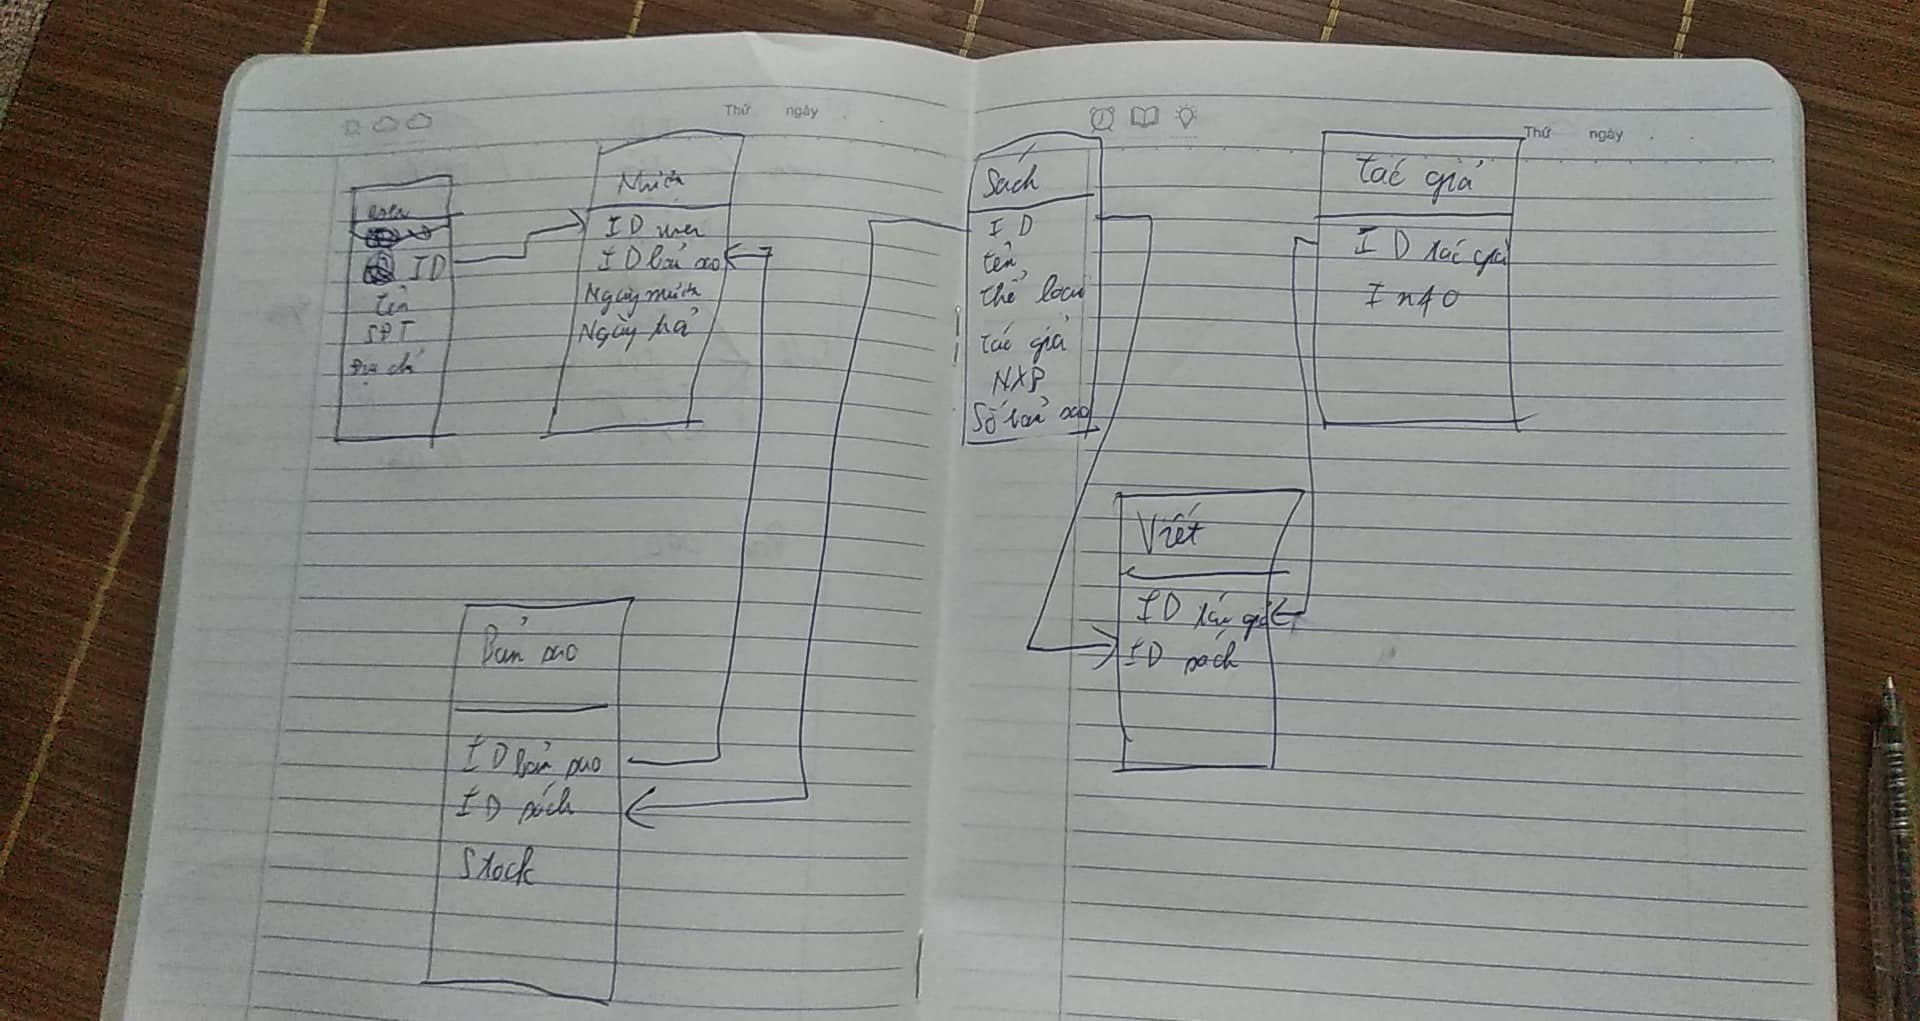 Thứ ngày
user
ID
tên
SĐT
Địa chỉ
Mượn
ID user
ID bản sao
Ngày mượn
Ngày trả
Bản sao
ID bản sao
ID sách
Stock
Thứ ngày
Sách
ID
tên
thể loại
tác giả
NXB
Số bản sao
tác giả
ID tác giả
Info
Viết
ID tác giả
ID sách